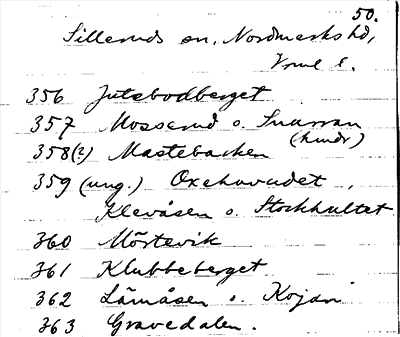 50.
Silleruds sn, Nordmarks hd,
Vrml l.
356 Jutebodberget
357 Mosserud o. Snarran
(hundr)
358(?) Mastebacken
359 (ung.) Oxehuvudet,
Klevåsen o. Stockhultet
360 Mörtevik
361 Klubbeberget
362 Lämåsen o. Kojan
363 Gravedalen.